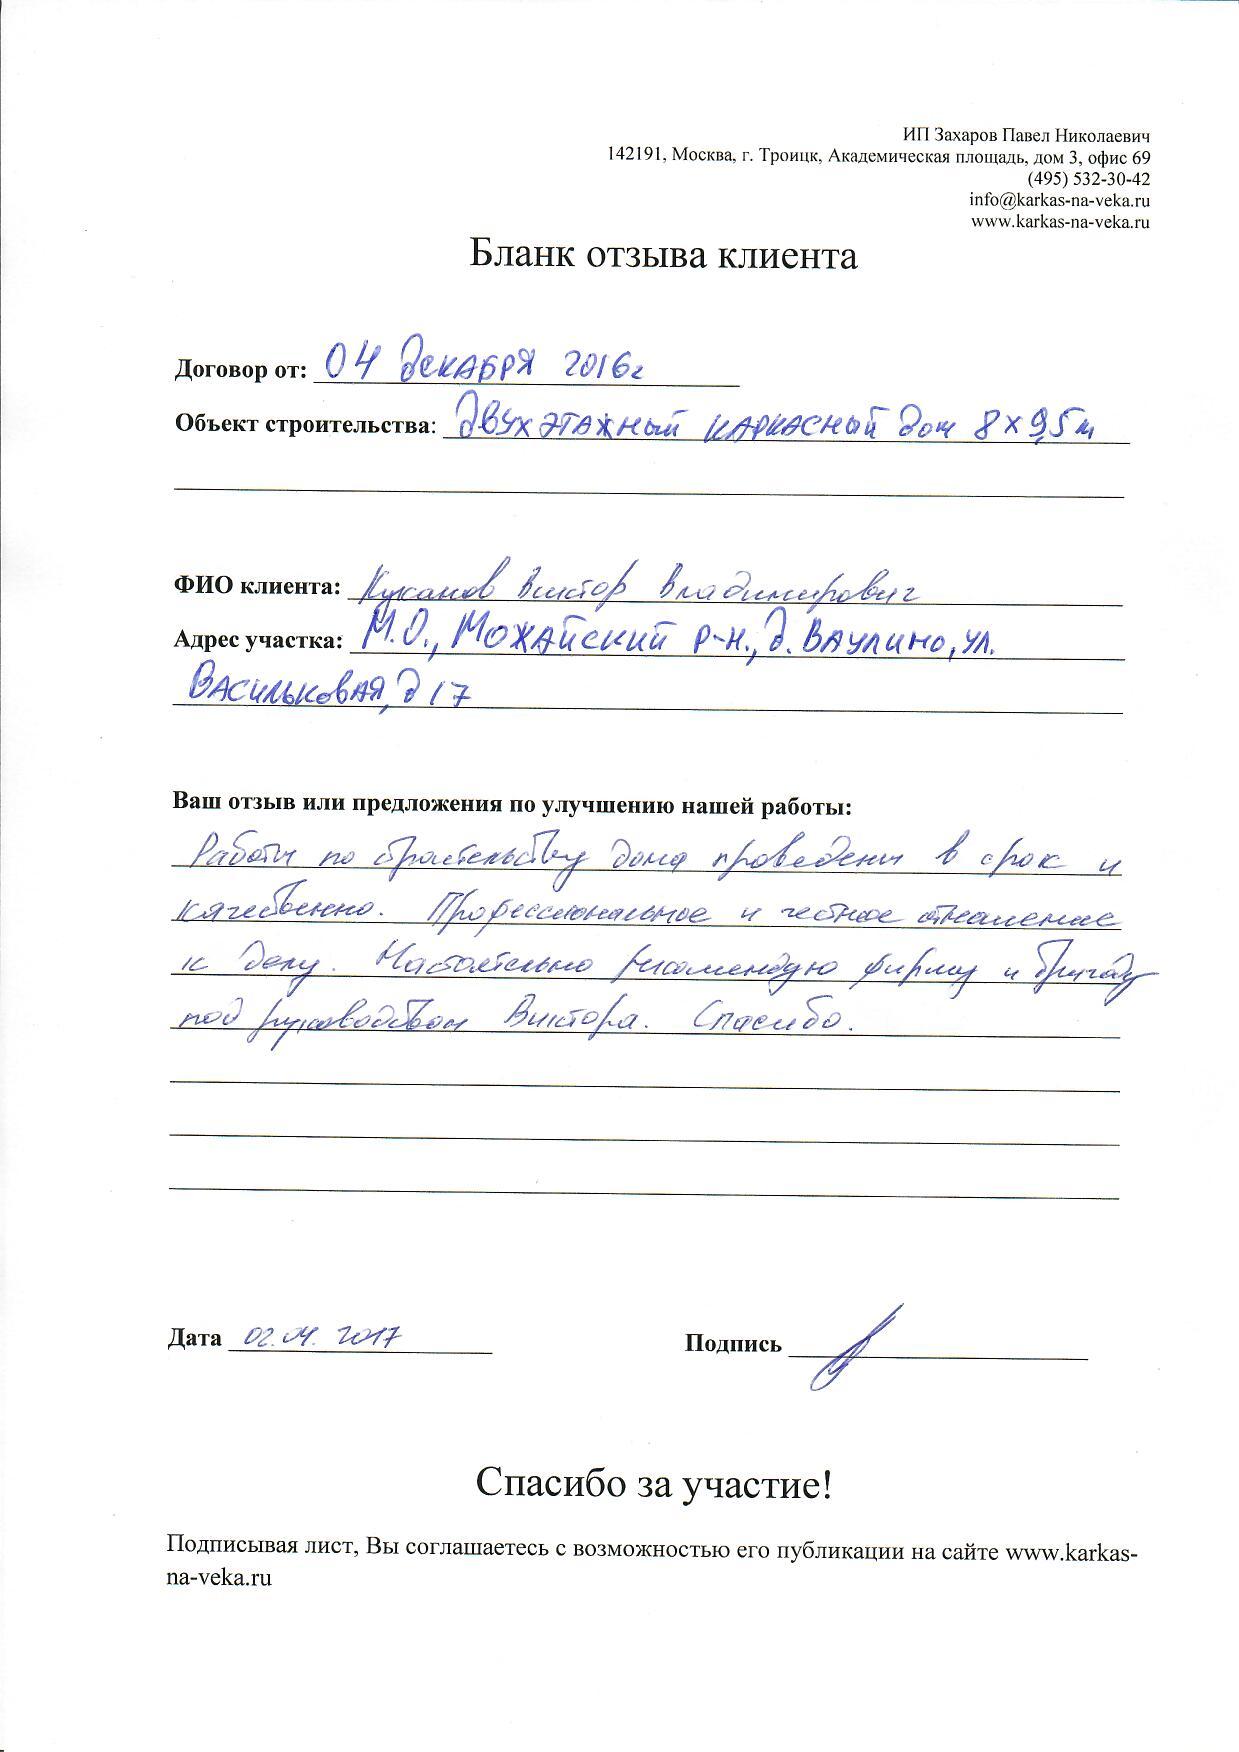 ИП Захаров Павел Николаевич
142191, Москва, г. Троицк, Академическая площадь, дом 3, офис 69
(495) 532-30-42
info@karkas-na-veka.ru
www.karkas-na-veka.ru
Бланк отзыва клиента
Договор от: 04 декабря 2016г
Объект строительства: двухэтажный каркасный дом 8х9,5м
ФИО клиента: Виктор Владимирович
Адрес участка: М.О., Можайский р-н., д. Ваулино, ул.
Васильковая, д 17
Ваш отзыв или предложения по улучшению нашей работы:
Работы по строительству дома проведены в срок и
качественно. Профессиональное и честное отношение
к делу. Настоятельно рекомендую фирму и бригаду
под руководством Виктора. Спасибо.
Дата 02.04.2017 Подпись
Спасибо за участие!
Подписывая лист, Вы соглашаетесь с возможностью его публикации на сайте www.karkas-
na-veka.ru